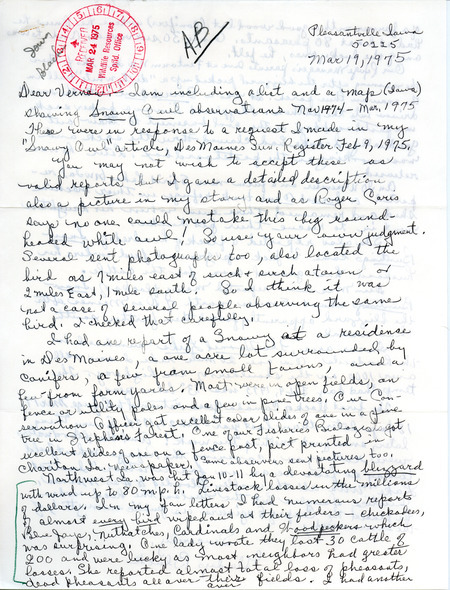 Pleasantville Iowa
50225
Mar 19, 1975
Iowa
RECEIVED
MAR 24 1975
Wildlife Resources
Solid Office
AB
Dear Vernon, - I am including a list and a map (Iowa)
showing Snowy Owl observations Nov 1974 - Mar. 1975
These were in response to a request I made in my
"Snowy Owl" article, Des Moines Sun. Register Feb 9, 1975.
You may not wish to accept these as
valid reports but I gave a detailed description
also a picture in my story and as Roger Caris
says no one could mistake this big round-
headed white owl! So use your own judgment.
Several sent photographs too, also located the
bird as 7 miles east of such & such a town or
2 miles East, 1 mile south. So I think it was
not a case of several people observing the same
bird. I checked that carefully.
I had one report of a Snowy at a residense
in Des Moines, a one acre lot surrounded by
conifers, a few from small towns, and a
few from farm yards. Most were in open fields, on
fence or utility poles and a few in pine trees. One Con-
servation Officer got excellent color slides of one in a pine
tree in Stephens Forest. One of our Fisheries Biologists got
excellent slides of one on a fence post, pict printed in
Chariton Ia. Newspaper. Some observers sent pictures too.
Northwest Ia. was hit Jan 10-11 by a devastating blizzard
with wind up to 80 m.p.h. Livestock losses in the millions
of dollars. In my Jan letters, I had numerous reports
of almost every bird wiped out at their feeders - chickadees,
Blue Jays, Nuthatches, Cardinals and Woodpeckers which
was surprising. One lady wrote they lost 30 cattle of
200 and were lucky as most neighbors had greater
losses. She reported almost total loss of pheasants,
dead pheasants all over their fields. I had another
over